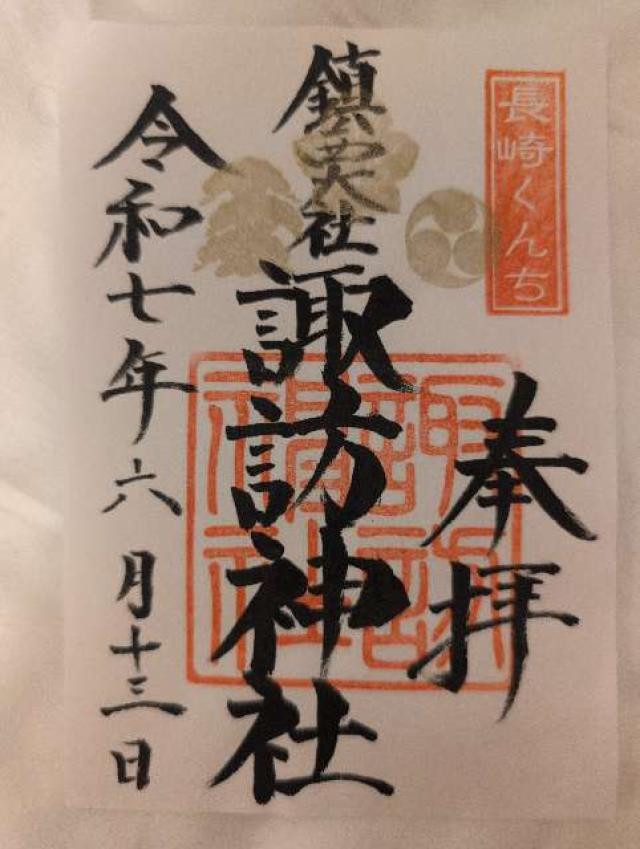 長崎くんち
奉拝
鎮西大社
諏訪神社
諏訪神社
令和七年六月十三日